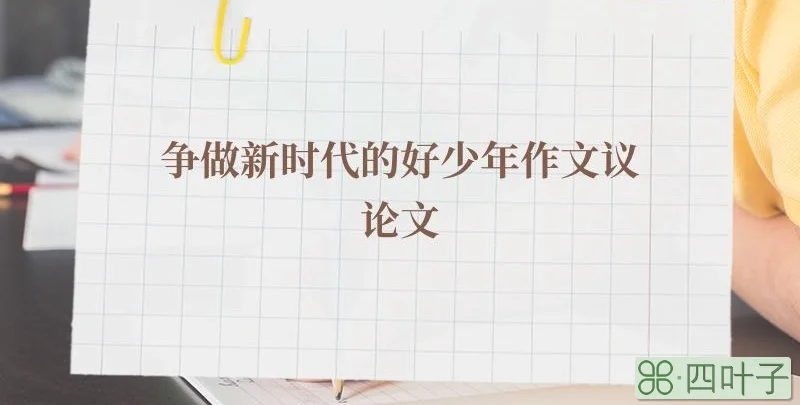 争做新时代的好少年作文议
论文
四叶子